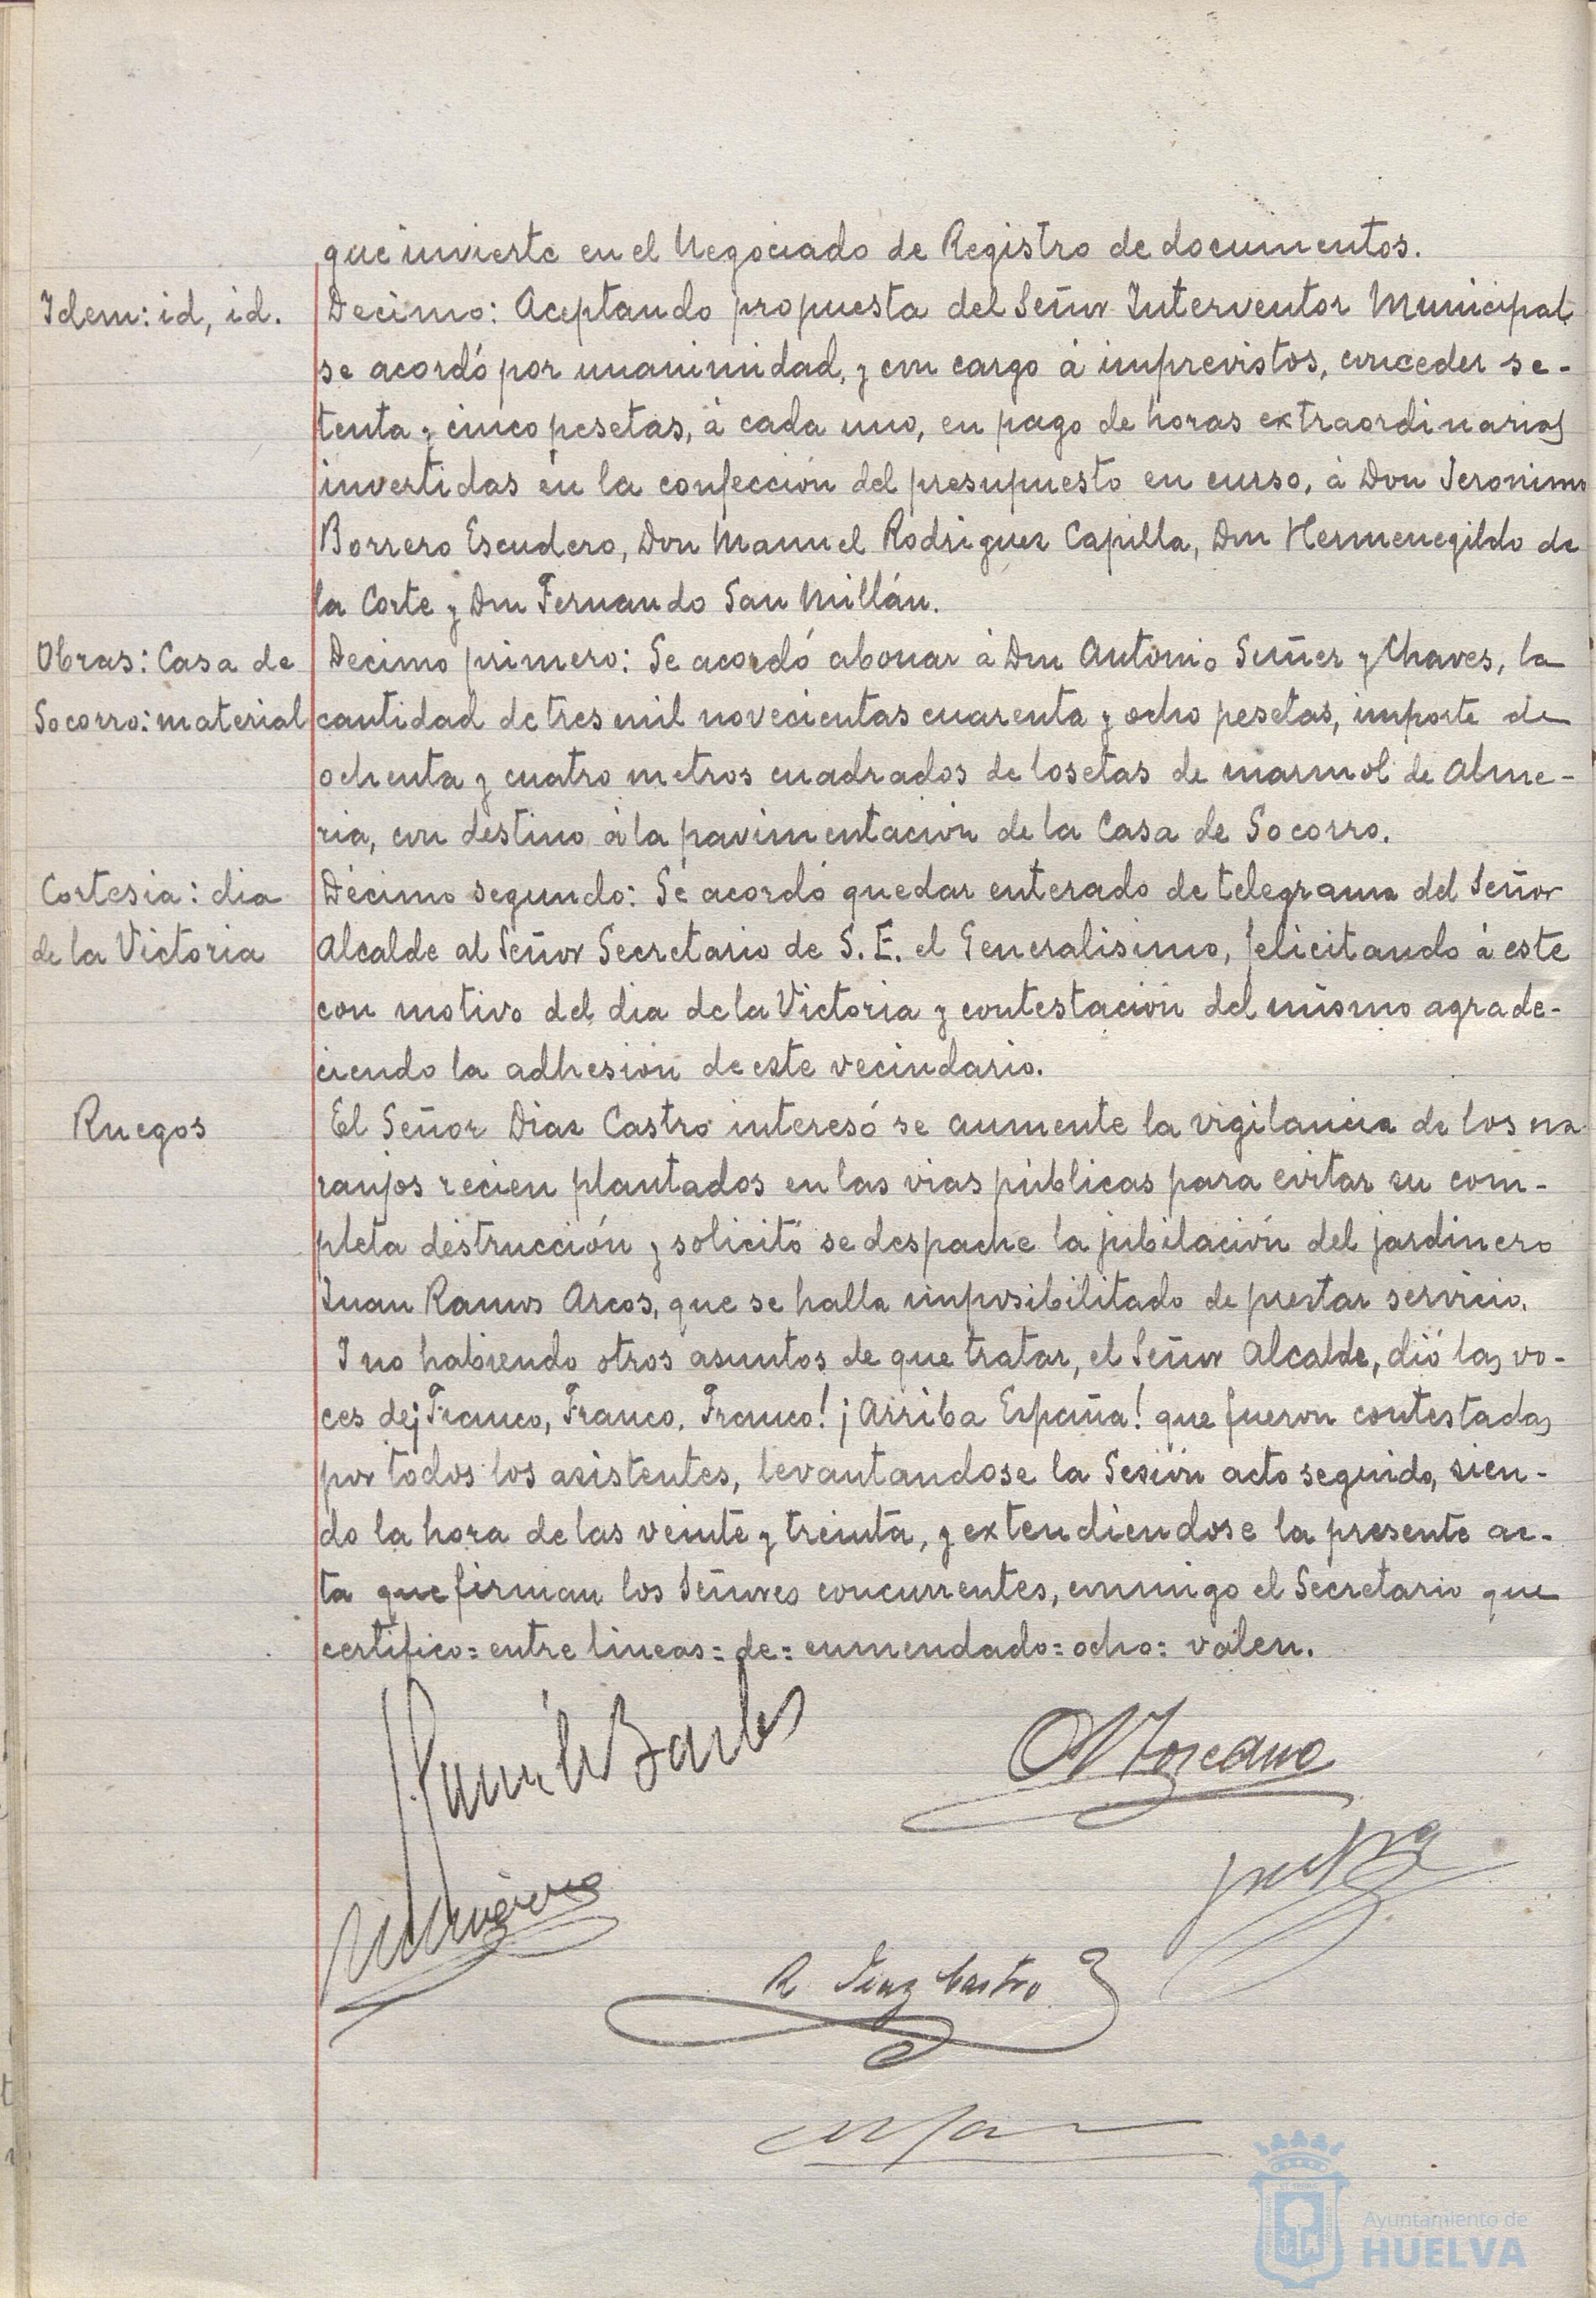 que invierte en el Negociado de Registro de documentos.
Idem: id, id.
Decimo: Aceptando propuesta del Señor Interventor Municipal
se acordó por unanimidad, y con cargo á imprevistos, conceder se-
tenta y cinco pesetas, á cada uno, en pago de horas extraordinarias
invertidas en la confección del presupuesto en curso, á Don Jeronimo
Borrero Escudero, Don Manuel Rodriguez Capilla, Don Hermenegildo de
la Corte y Don Fernando San Millán.
Obras: Casa de
Socorro: material
Decimo primero: Se acordó abonar á Don Antonio Suñer y Chaves, la
cantidad de tres mil novecientas cuarenta y ocho pesetas, importe de
ochenta y cuatro metros cuadrados de losetas de marmol de Alme-
ria, con destino á la pavimentación de la Casa de Socorro.
Cortesia: dia
de la Victoria
Décimo segundo: Se acordó quedar enterado de telegrama del Señor
Alcalde al Señor Secretario de S. E. el Generalisimo, felicitando á este
con motivo del dia de la Victoria y contestación del mismo agrade-
ciendo la adhesión de este vecindario.
Ruegos
El Señor Diaz Castro interesó se aumente la vigilancia de los na-
ranjos recien plantados en las vias públicas para evitar su com-
pleta destrucción y solicitó se despache la jubilación del jardinero
Juan Ramos Arcos, que se halla imposibilitado de prestar servicio.
I no habiendo otros asuntos de que tratar, el Señor Alcalde, dió las vo-
ces de ¡Franco, Franco, Franco! ¡Arriba España! que fueron contestadas
por todos los asistentes, levantandose la Sesión acto seguido, sien-
do la hora de las veinte y treinta, y extendiendose la presente ac-
ta que firman los Señores concurrentes, conmigo el Secretario que
certifico= entre lineas= de= enmendado= ocho= valen.
R. Diaz Castro
Ayuntamiento de
HUELVA